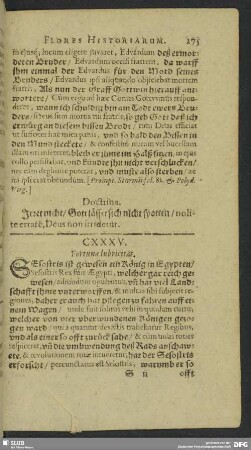 FLORES HISTORIARUM. 275
deren Bruder / Edvardum occidi
ihn einmal der Edvardus für den Mord seines
Bruders / Edvardus ipsi aliquando objiciebat mortem
fratris, Als nun der Graff Gottwin hierauff ant-
wortete / Cum regum hæc Comes Gotvvinus respon-
deret, wann ich schuldig bin am Tode ewers Bru-
ders / si reus sum mortis tui fratris, so geb Gott das ich
erwürg an diesem bissen Brods / tum Deus efficiat
ut suffocer hac mica panis, und so bald den Bissen in
den Mund steckete / & confestim ut eam buccellam
illam in os injiceret, bleib er jhme im Halß sitzen,
collo persistebat, und kundte ihn nicht verschlucken /
nec eam deglutire poterat, und muste also sterben /
Doctrina.
Irret nicht / Gott lässet sich nicht spotten / noli-
te errare, Deus non irridetur.
CXXXV.
Fortunæ lubricitas.
SEsostris ist gewesen ein König in Egypten /
Sesostris Rex fuit Ægypti, welcher gar reich ge-
wesen / admodum opulentus, und hat viel Land-
schafft ihme unterworffen / & multas sibi subjecit re-
giones, daher er auch hat pflegen zu fahren auff ei-
nem Wagen / unde fuit solitus vehi in quodam curru,
welcher von vier uberwundenen Königen gezo-
gen ward /
und als einer so offt zurück sahe / & cum unus
respiceret, und die umbwendung des Rads anschaw-
ete, & revolutionem rotæ intueretur, hat der Sesostris
erforscht / percunctatus est Sesostris, warumb er so
S ii offt
SLUB